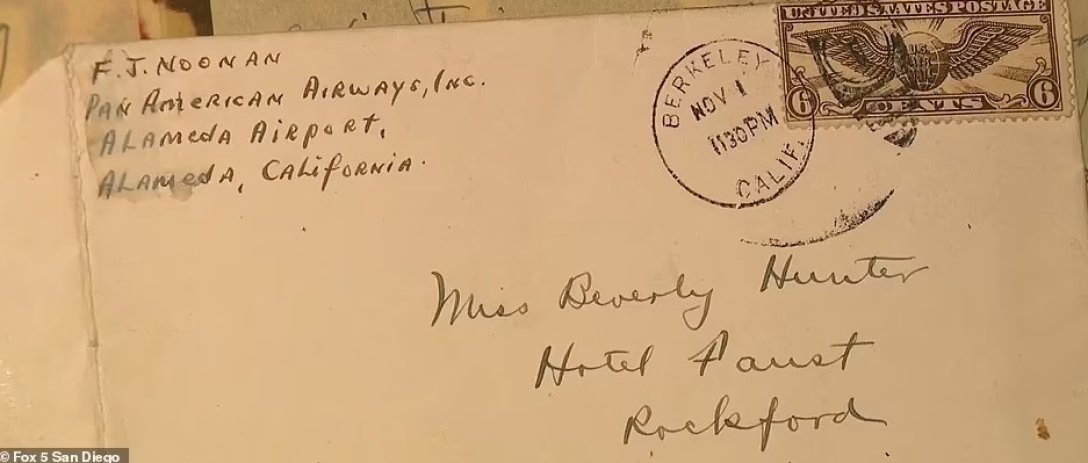 F.J. NOONAN
PAN AMERICAN AIRWAYS, INC.
ALAMEDA AIRPORT,
ALAMEDA, CALIFORNIA.
BERKELEY
NOV 1
1130 PM
CALIF.
UNITED STATES POSTAGE
U.S.
6 CENTS 6
Miss Beverly Hunter
Hotel Faust
Rockford
© Fox 5 San Diego